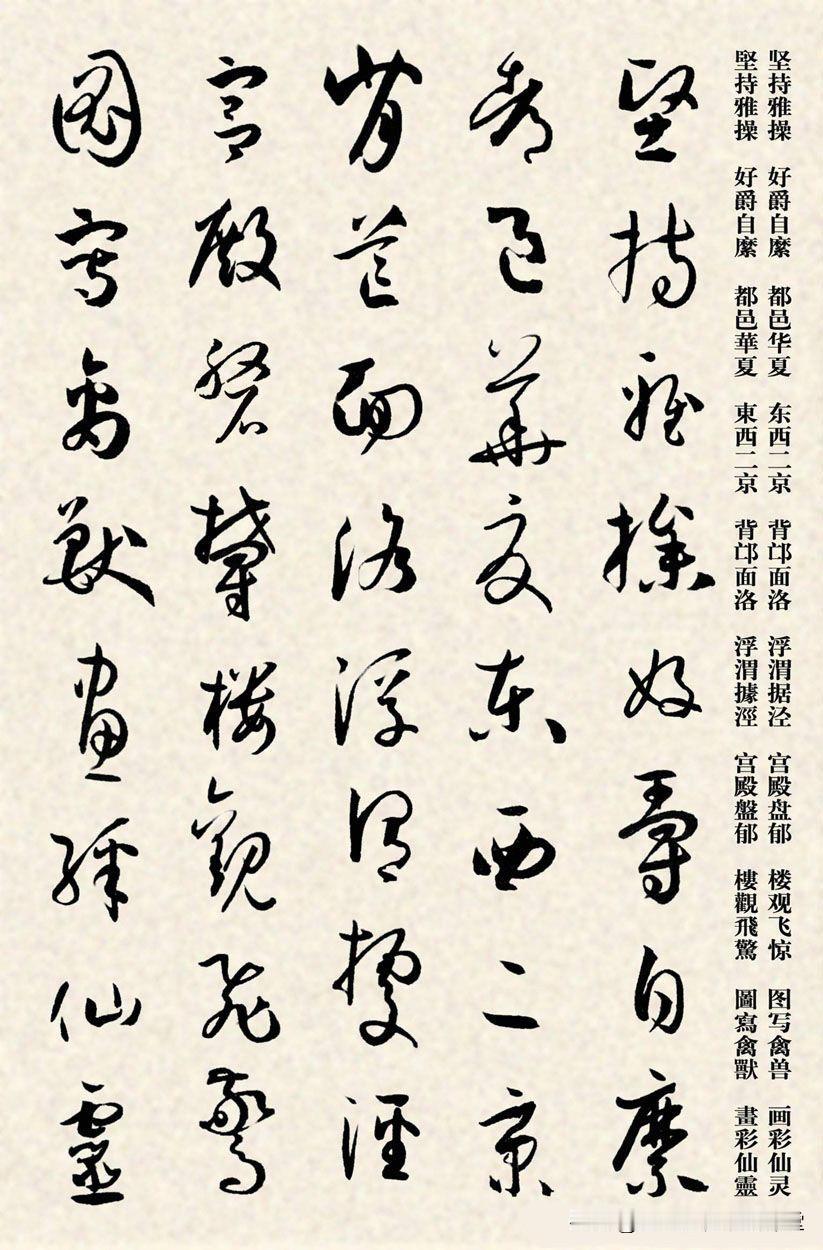 坚持雅操 好爵自縻 都邑华夏 东西二京 背邙面洛 浮渭据泾 宫殿盘郁 楼观飞惊 图写禽兽 画彩仙灵
堅持雅操 好爵自縻 都邑華夏 東西二京 背邙面洛 浮渭據涇 宫殿盤郁 樓觀飛驚 圖寫禽獸 畫彩仙靈
堅持雅操好爵自縻
都邑華夏東西二京
背芒面洛浮渭據涇
宮殿磐鬱樓觀飛驚
圖寫禽獸畫綵仙靈